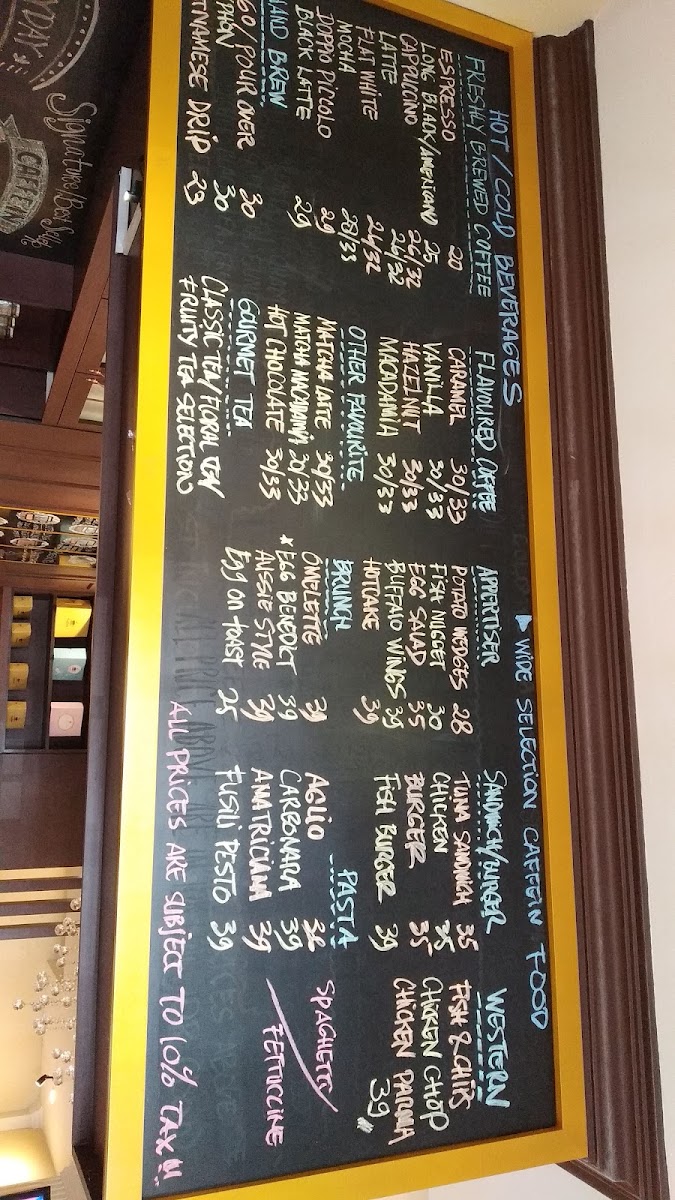 HOT/COLD BEVERAGES
FRESHLY BREWED COFFEE
ESPRESSO 20
LONG BLACK/AMERICANO 25
CAPPUCINO 26/32
LATTE 24/32
FLAT WHITE 24/32
MOCHA 28/33
DOPPIO PICCOLO 29
BLACK LATTE 29
AND BREW
GO/POUR OVER 30
PHEN 30
TNAMESE DRIP 23
FLAVOURED COFFEE
CARAMEL 30/33
VANILLA 30/33
HAZELNUT 30/33
MACADAMIA 30/33
OTHER FAVOURITE
MATCHA LATTE 30/33
MATCHA MACADAMIA 30/33
HOT CHOCOLATE 30/33
GOURMET TEA
CLASSIC TEA/FLORAL TEA
FRUITY TEA SELECTIONS
WIDE SELECTION CAFFEIN FOOD
APPERTISER
POTATO WEDGES 28
FISH NUGGET 30
EGG SALAD 35
BUFFALO WINGS 39
HOTCAKE 39
BRUNCH
OMELETTE 39
* EGG BENEDICT 39
AUSSIE STYLE 39
Egg on toast 25
SANDWICH/BURGER
TUNA SANDWICH 35
CHICKEN 35
BURGER 35
FISH BURGER 39
PASTA
AGLIO
CARBONARA 39
AMATRICIANA 39
FUSILI PESTO 39
WESTERN
FISH & CHIPS
CHICKEN CHOP
CHICKEN PARMA
39
SPAGHETTY
FETTUCCINE
ALL PRICES ARE SUBJECT TO 10% TAX!!!
YDAY
Signature Best Sell
CAFFEIN